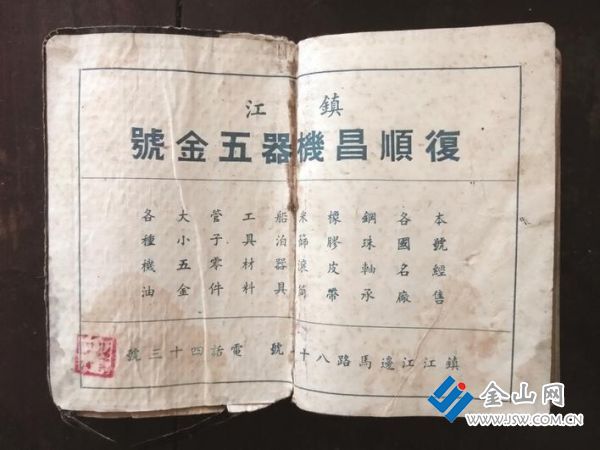 鎮江
復順昌機器五金號
本號經售
各國名廠
鋼珠軸承
橡膠皮帶
米篩滾筒
船泊器具
工具材料
管子零件
大小五金
各種機油
鎮江江邊馬路八十號 電話四十三號
金山网
WWW.JSW.COM.CN